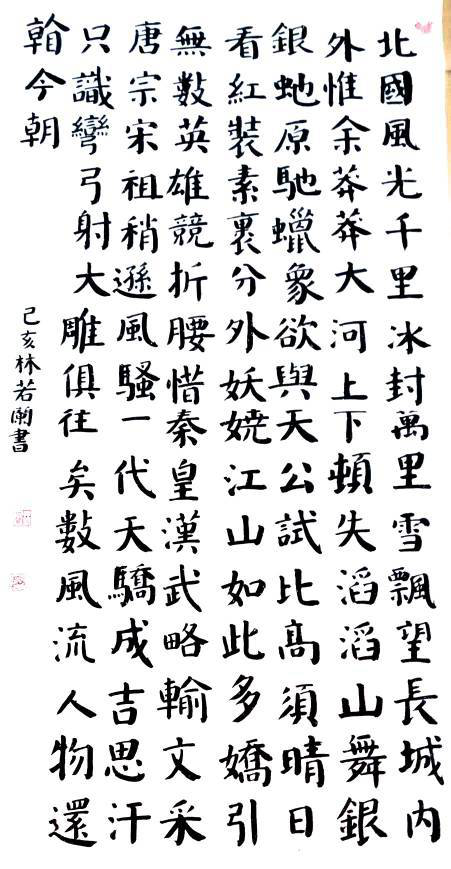 北國風光千里冰封萬里雪飄望長城內
外惟余莽莽大河上下頓失滔滔山舞銀
銀虵原馳蠟象欲與天公試比髙須晴日
看紅裝素裹分外妖嬈江山如此多嬌引
無數英雄競折腰惜秦皇漢武略輸文采
唐宗宋祖稍遜風騷一代天驕成吉思汗
只識彎弓射大雕俱往矣數風流人物還
翰今朝
己亥林若蘭書